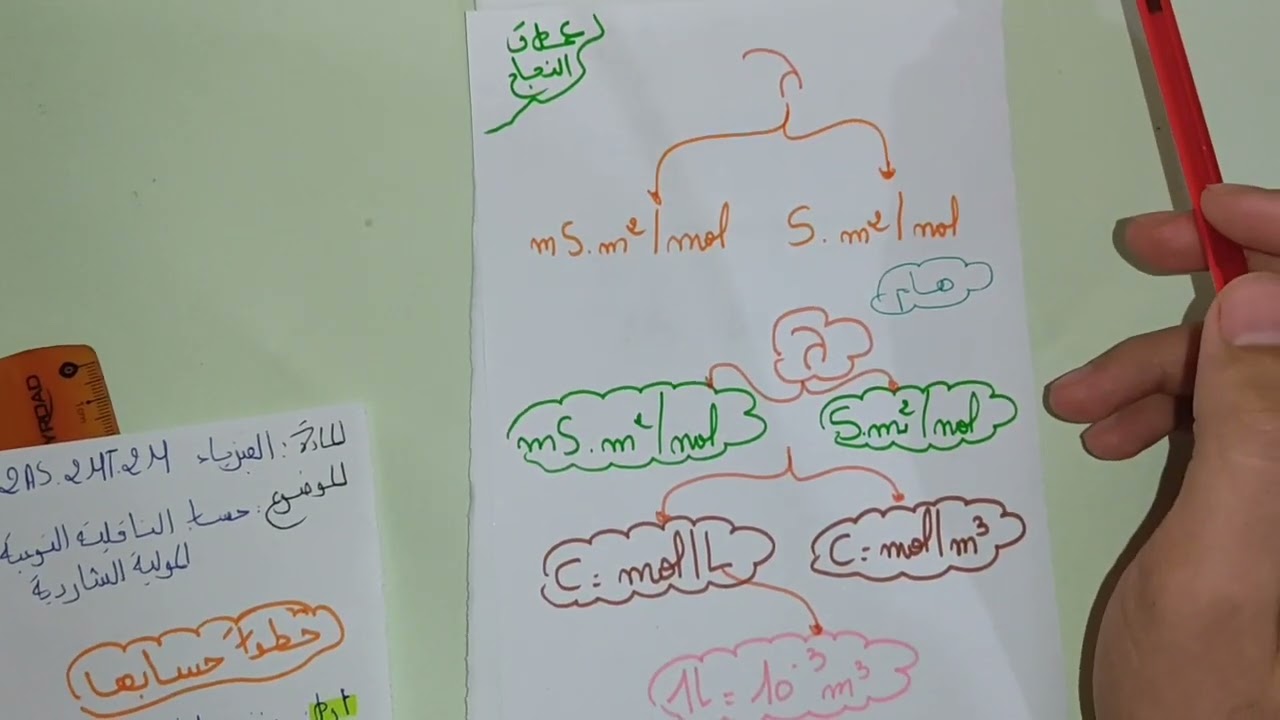 عملاق
النجاح
λ
mS.m²/mol S.m²/mol
هام
λ
mS.m²/mol S.m²/mol
C = mol/L C = mol/m³
1L = 10⁻³ m³
المادة: الفيزياء 2AS.2MT.2M
الموضوع: حساب الناقلية النوعية
المولية الشاردية
خطوات حسابها